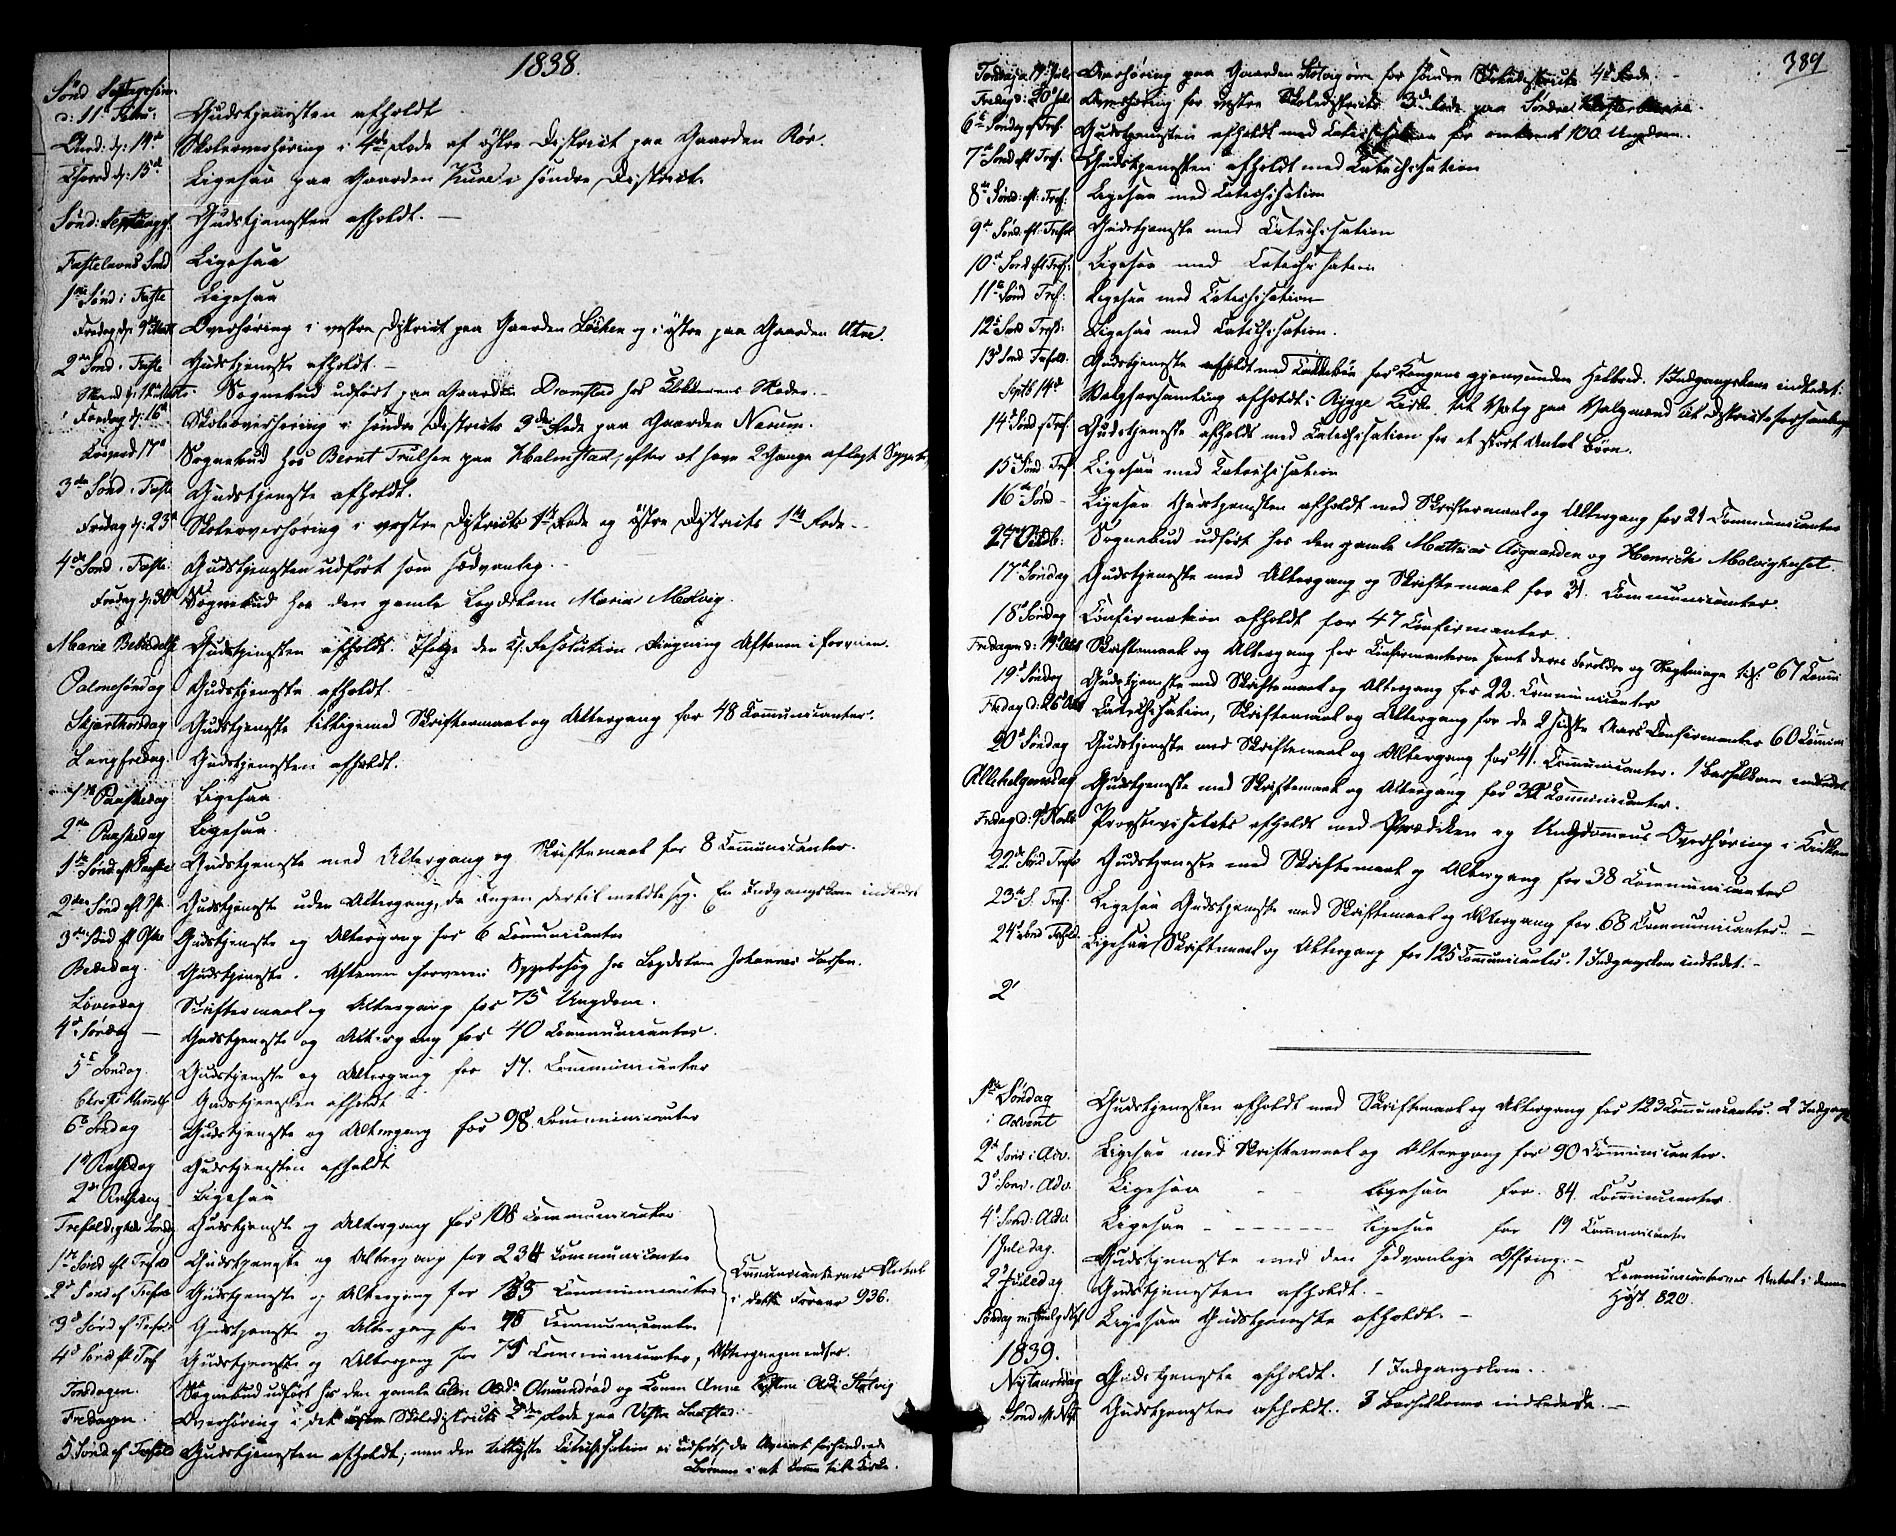 1838.
Sønd Septuagesima
d: 11te Febru: Gudstjenesten afholdt
Onsd: d: 14de Skoleoverhøring i 4de Rode af østre District paa Gaarden Rör.
Thorsd d: 15de Ligesaa paa Gaarden Kure i søndre District.
Sønd: Gudstjenesten afholdt. —
Fastelavns Sønd Ligesaa
1ste Sønd i Faste Ligesaa
Fredag d: 9de Overhøring i vestre District paa Gaarden Löken og i østre paa Gaarden
2den Sønd i Faste Gudstjeneste afholdt. —
Sognebud udført paa Gaarden Dramstad hos Moder. —
Fredag d: 16de Skoleoverhøring i søndre Districts 3die Rode paa Gaarden
17de Sognebud hos Bernt Trulsen paa Halmstad, efter at have 2 Gange aflagt
3die Sønd i Faste Gudstjeneste afholdt.
Fredag d: 23de Skoleoverhøring i vestre Districts Rode og østre Districts 1ste Rode —
4de Sønd i Faste Gudstjenesten udført som sædvanlig.
Fredag d: 30te Sognebud hos den gamle Legdslem Maria Molvig.
Mariæ Bebudelse Gudstjenesten afholdt. Ifølge den Resolution Aftenen i forveien.
Palmesøndag Gudstjeneste afholdt.
Skjærthorsdag Gudstjeneste tilligemed Skriftemaal og Altergang for 48 Communicanter.
Langfredag Gudstjenesten afholdt.
1ste Paaskedag Ligesaa
2den Paaskedag Ligesaa.
1ste Sønd eft Paaske Gudstjeneste med Altergang og Skriftemaal for 8 Communicanter.
2den Sønd eft P. Gudstjeneste uden Altergang, da ingen dertil meldte sig. En Indgangskone indledet
3die Sønd eft Paas Gudstjeneste og Altergang for 6 Communicanter
Bededag. Gudstjeneste. Aftenen forveien Sygebesøg hos Legdslem Johannes
Løverdag Skriftemaal og Altergang for 75 Ungdom.
4de Søndag — Gudstjeneste og Altergang for 40 Communicanter.
5te Søndag. Gudstjeneste og Altergang for 17. Communicanter
Christi Himmelf Gudstjenesten afholdt
6te Søndag Gudstjeneste og Altergang for 98 Communicanter
1ste Pintsedag Gudstjenesten afholdt
2den Pintsedag Ligesaa
Trefoldigheds Søndag Gudstjeneste og Altergang for 108 Communicanter
1ste Sønd eft Trefold Gudstjeneste og Altergang for 234 Communicanter
Communicanternes Antal
2den Sønd ef Trefold Gudstjeneste og Altergang for Communicanter
i dette Foraar 936.
3die Sønd ef Trefold Gudstjeneste og Altergang for 98 Communicanter
4de Sønd eft Tref Gudstjeneste og Altergang for 75 Communicanter,
Torsdagen. Sognebud udført hos den gamle Amundrød og Konen Anne
Fredagen. Overhøring i det østre Skoledistricts 2den Rode paa Vestre
5 Sønd ef Trefold Gudstjenesten afholdt; men den Catechisation ei udført, da forhindrede
Børnene i at komme til Kirke.
389
Torsdag d 19 Juli Overhøring paa Gaarden for søndre Skoledistricts 4de Rode. —
Fredag d: 20de Juli Overhøring for vestre Skoledistricts 3die Rode paa Søndre
6te Søndag ef Tref. Gudstjenesten afholdt med Catechisation for omtrent 100 Ungdom.
7de Sønd eft Tref. Gudstjenesten afholdt med Catechisation
8de Sønd: eft: Tref: Ligesaa med Catechisation
9de Sønd: eft: Trefol Gudstjeneste med Catechisation
10de Sønd eft Tref: Ligesaa med Catechisation
11te Sønd Tref: Ligesaa med Catechisation
12te Sønd Tref: Ligesaa med Catechisation.
13de Sønd Trefold. Gudstjeneste afholdt med Takkebøn for Kongens gjenvundne Helbred. 1 Indgangskone indledet.
Septb 14de Valgforsamling afholdt i Rygge Kirke til Valg paa Valgmænd til Districtsforsamlingen
14de Sønd eft Tref: Gudstjeneste afholdt med Catechisation for et stort Antal Børn.
15de Sønd. Tref. Ligesaa med Catechisation
16de Sønd — Ligesaa Gudstjenesten afholdt med Skriftemaal og Altergang for 21 Communicanter
Octb: Sognebud udført hos den gamle Mathias Aagaarden og Henrich Molvighuset.
17de Søndag Gudstjeneste med Altergang og Skriftemaal for 31. Communicanter.
18de Søndag Confirmation afholdt for 47 Confirmanter.
Fredagen d: 19de Oct Skriftemaal og Altergang for Confirmanterne samt deres Forældre og Slægtninge 67 Comm
19de Søndag Gudstjeneste med Skriftemaal og Altergang for 22. Communicanter
Fredag d: 26de Oct Catechisation, Skriftemaal og Altergang for de 2 sidste Aars Confirmanter 60 Commun
20de Søndag Gudstjeneste med Skriftemaal og Altergang for 41. Communicanter. 1 Barselkone indledet
Allehelgensdag Gudstjeneste med Skriftemaal og Altergang for Communicanter.
Fredag d: 9de Novb Provstevisitats afholdt med Prædiken og Ungdommens Overhøring i Kirken
22de Sønd Tref Gudstjeneste med Skriftemaal og Altergang for 38 Communicanter
23de S. Tref. Ligesaa Gudstjeneste med Skriftemaal og Altergang for 68 Communicanter. —
24de Sønd Trefold. Ligesaa Skriftemaal og Altergang for 125 Communicanter. 1 Indgangskone indledet. —
2
1ste Søndag
i Advent Gudstjenesten afholdt med Skriftemaal og Altergang for 123 Communicanter. 2 Indgangs
2den Sønd i Adv. Ligesaa med Skriftemaal og Altergang for 90 Communicanter.
3die Sønd. Adv. Ligesaa ligesaa for. 84 Communicanter.
4de Sønd: Adv Ligesaa ligesaa for 19 Communicanter
1 Juledag. Gudstjeneste med den sædvanlige Offring. —
2den Juledag Gudstjenesten afholdt. —
Communicanternes Antal i denne
Høst 820.
Søndag Ligesaa Gudstjeneste afholdt. —
1839.
Nytaarsdag Gudstjeneste afholdt. 1 Indgangskone.
Sønd Gudstjeneste afholdt. 3 Barselkoner indledede. —